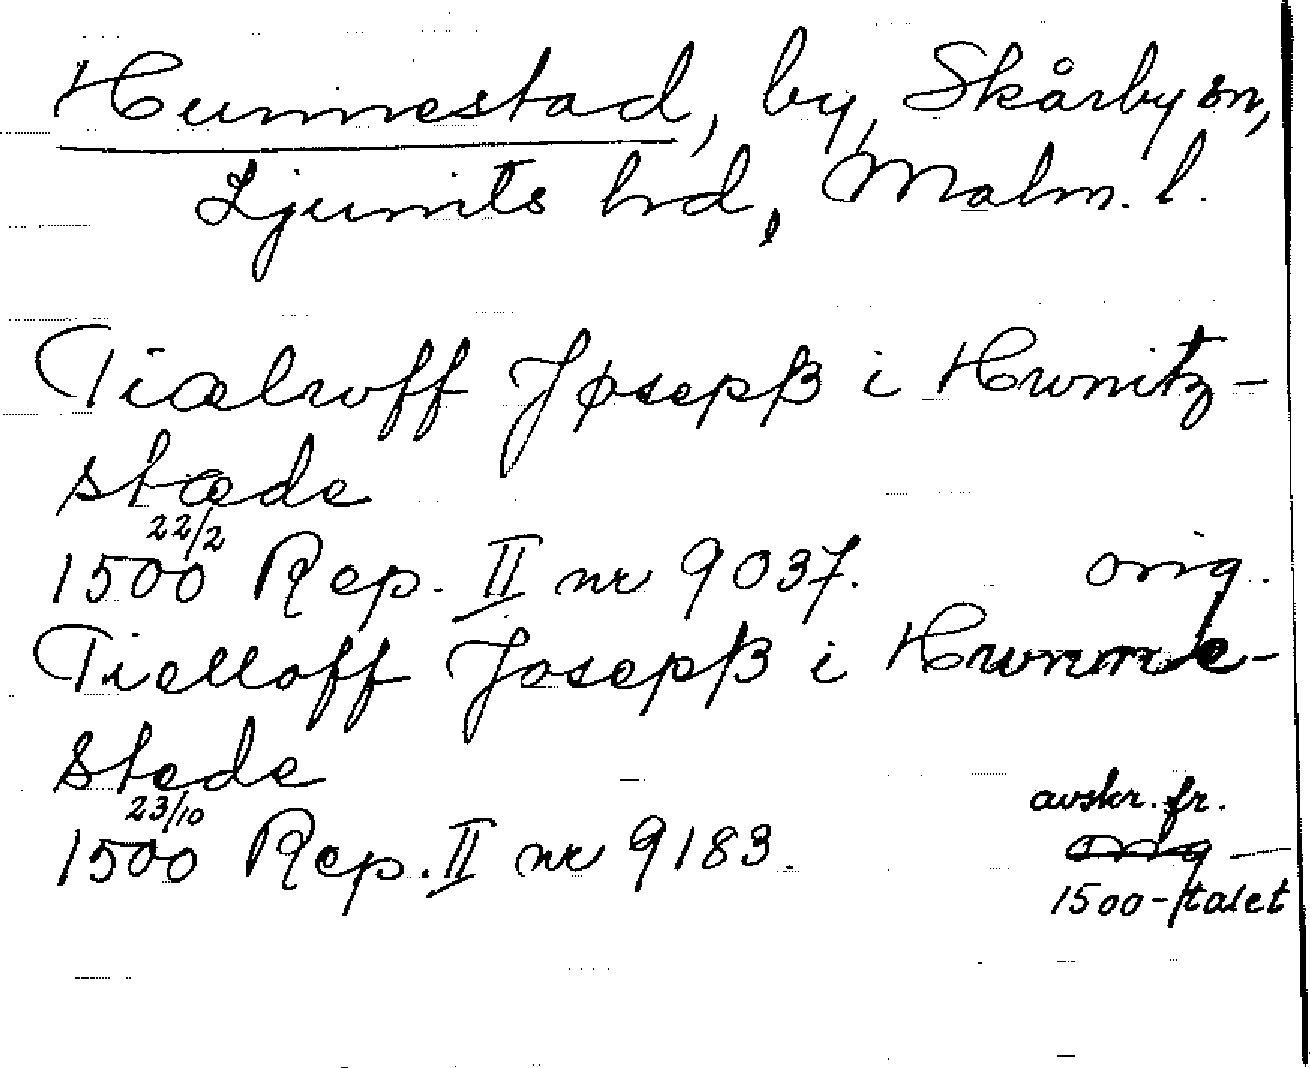 Hunnestad, by, Skårby sn,
Ljunits hrd, Malm. l.
Tiælwoff Jøsepß i Hwnitz-
stæde
22/2
1500 Rep. II nr 9037. orig.
Tielloff Josepß i Hwnne-
stede
23/10 avskr. fr.
1500 Rep. II nr 9183. orig
1500-talet